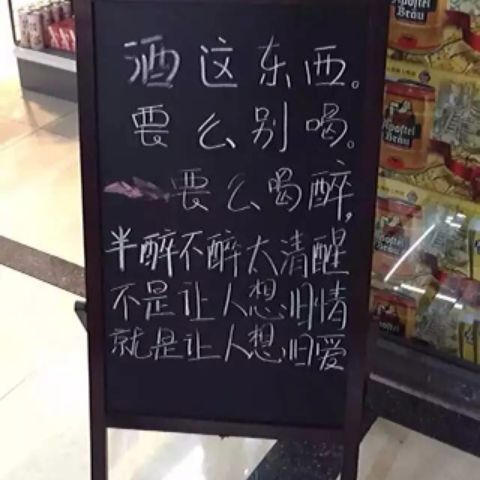 酒这东西。
要么别喝。
要么喝醉,
半醉不醉太清醒
不是让人想旧情
就是让人想旧爱
Apostel
Bräu
Apostel
Bräu